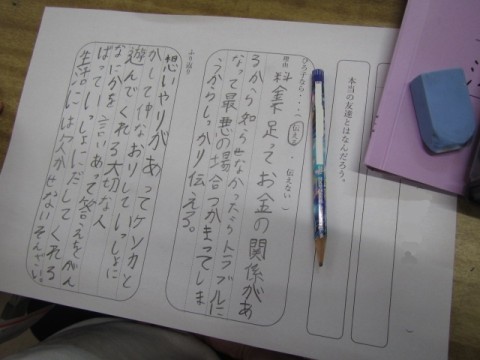 本当の友達とはなんだろう。
ひろ子なら…(伝える・伝えない)
理由
料金不足ってお金の関係があ
るから知らせなかったらトラブルに
なって最悪の場合つかまってしま
うからしっかり伝える。
ふり返り
想いやりがあってケンカと
かして仲なおりしていっしょに
遊んでくれる大切な人
なにかを言いあって答えをがん
ばっていっしょにだしてくれる
生活には欠かせないそんざい。